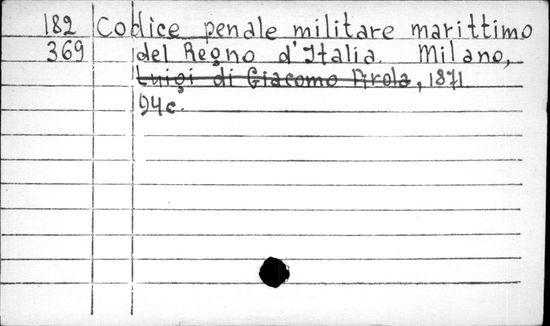 182 Codice penale militare marittimo
369 del Regno d'Italia. Milano,
Luigi di Giacomo Pirola, 1871
94 c.